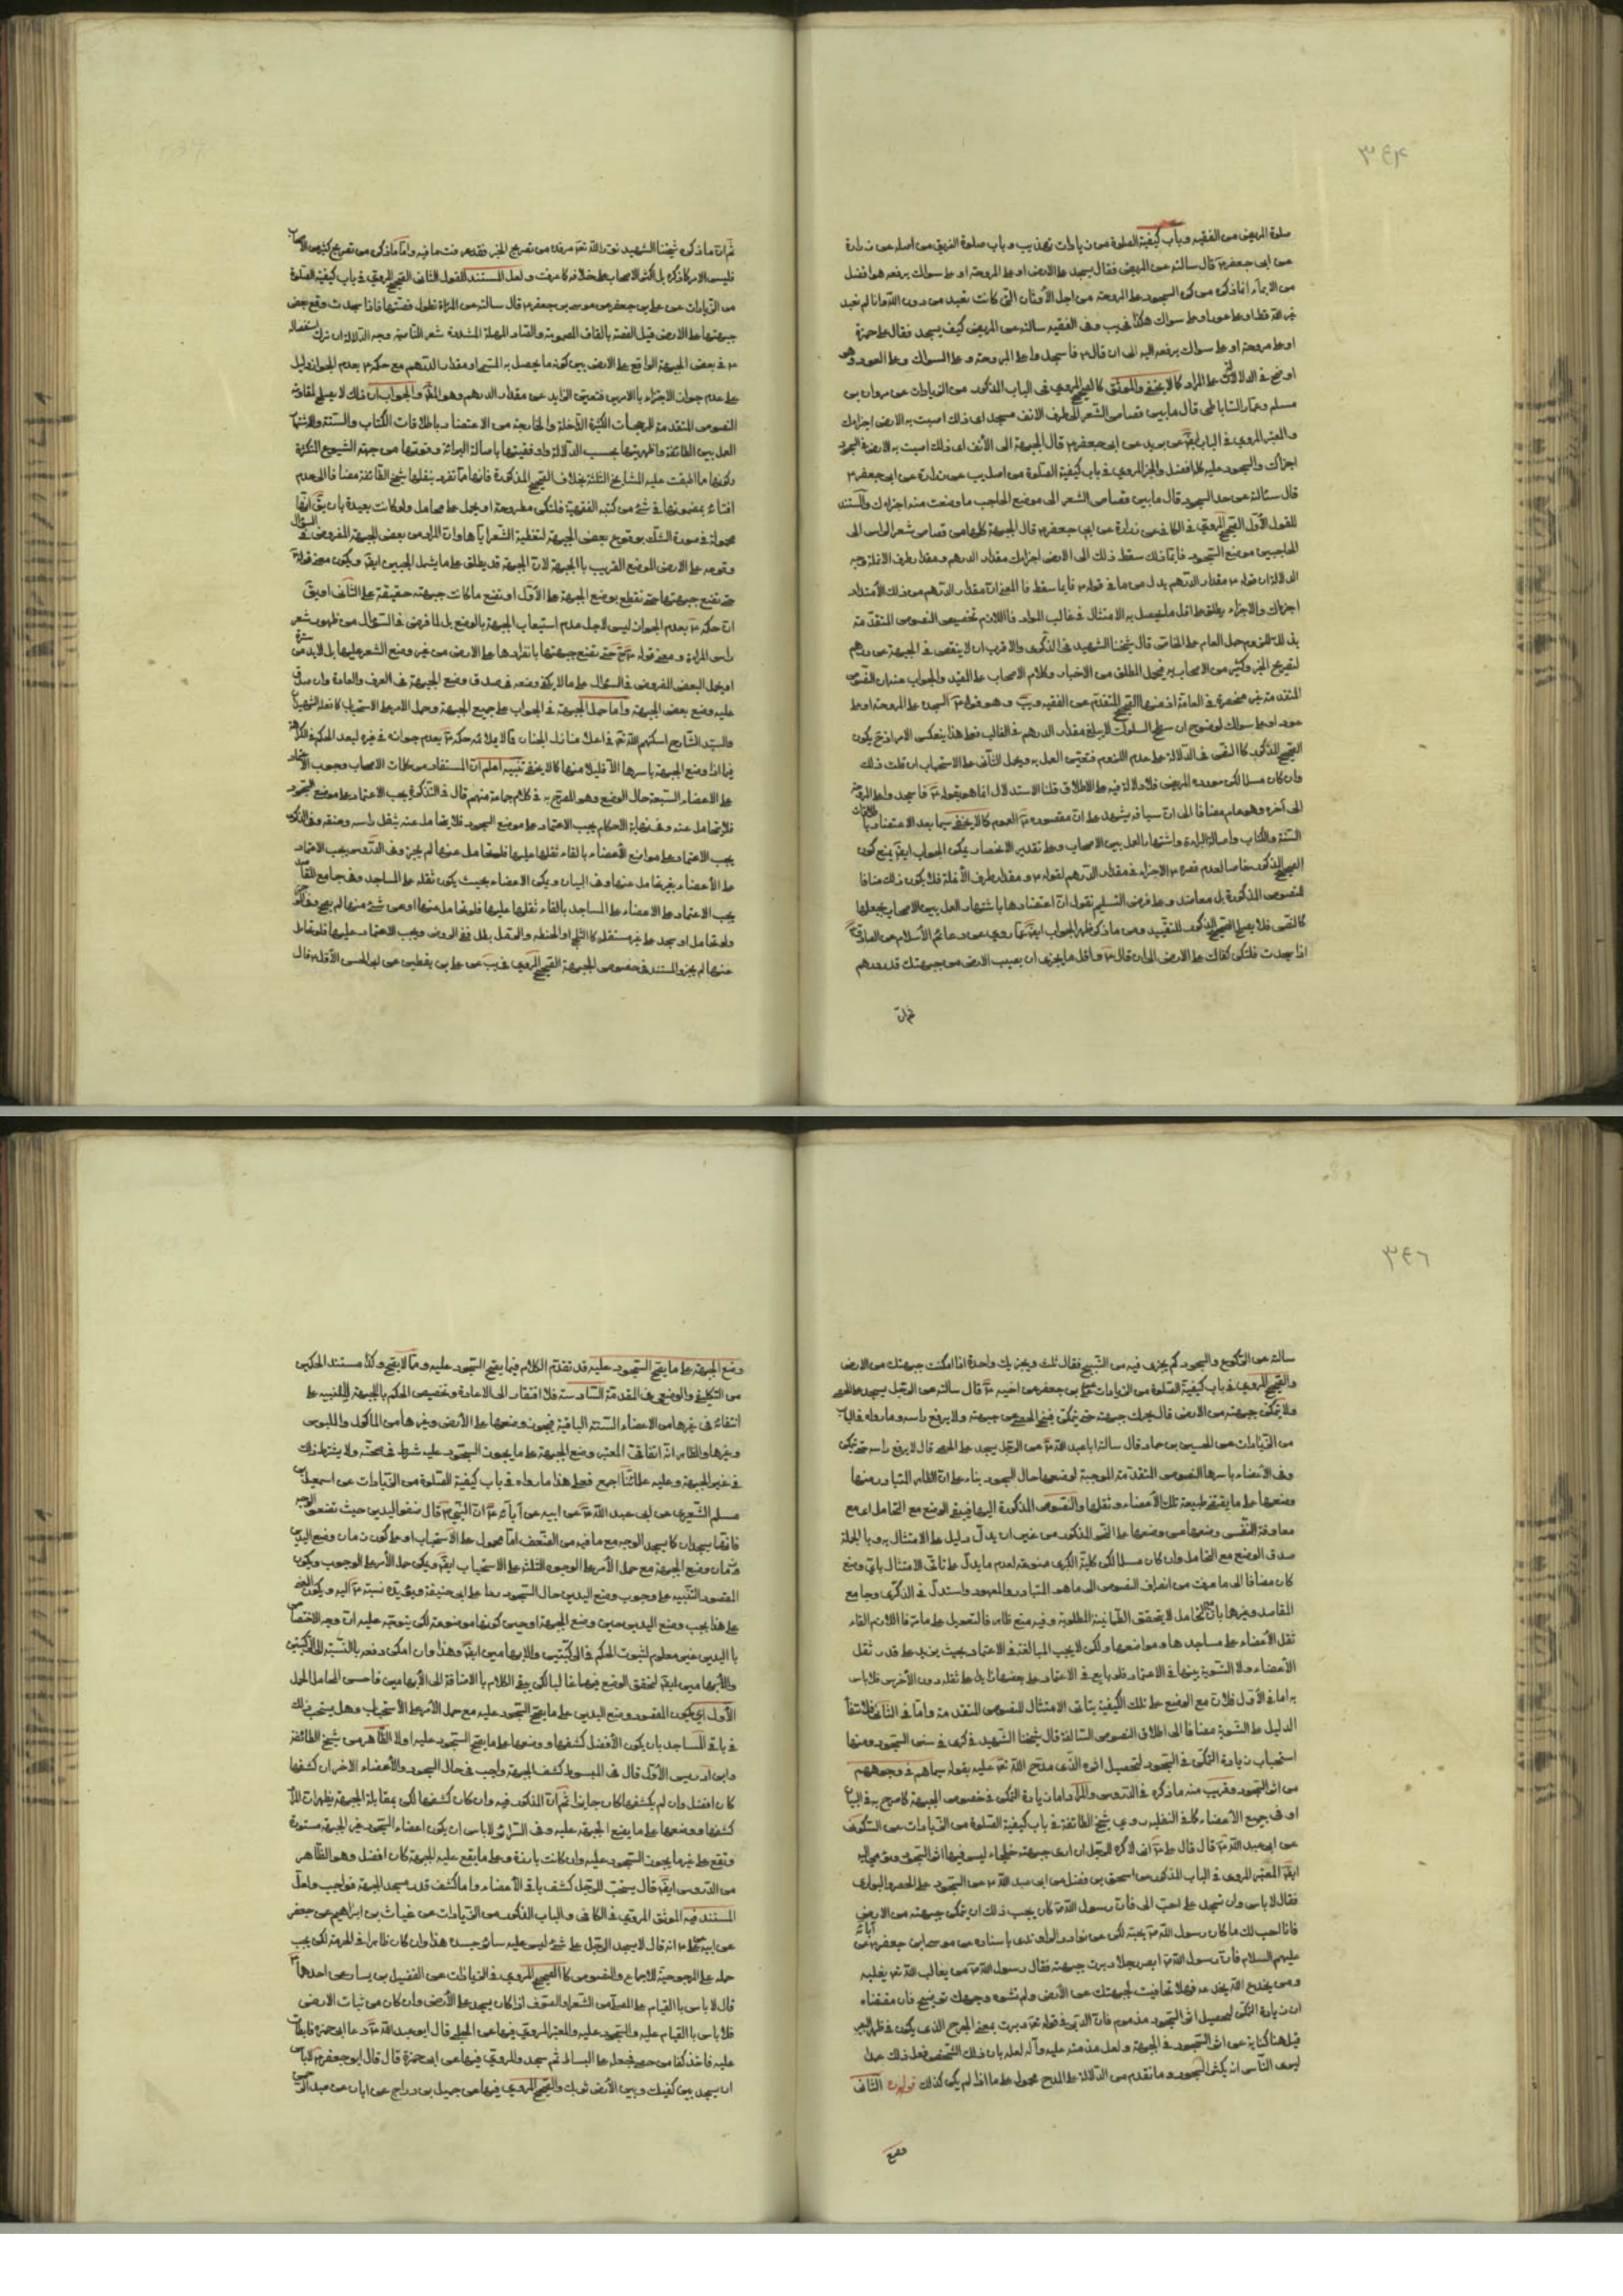 ٣٤٤
صلوة المريض من الفقيه وباب كيفية الصلوة من زيادات تهذيب وباب صلوة الغريق من اصله عن زرارة
عن ابى جعفر ع قال سالته عن المريض فقال يسجد على الارض او على المروحة او على سواك يرفعه هو افضل
من الايماء انما ذكره من كره السجود على المروحة من اجل الأوثان التى كانت تعبد من دون الله وانا لم نعبد
غير الله قط او على عود او على سواك هكذا فى يب وفى الفقيه سالته عن المريض كيف يسجد فقال على خمرة
او على مروحة او على سواك يرفعه اليه الى ان قال ع فاسجد وا على المروحة و على السواك وعلى العود وهو
اوضح فى الدلالة على المراد كما لا يخفى والموثق كالصحيح المروى فى الباب المذكور من الزيادات عن مروان بن
مسلم وعمار الساباطى قال ما بين قصاص الشعر الى طرف الانف مسجد اى ذلك اصبت به الارض اجزاك
والمعتبر المروى فى الباب ايضا عن بريد عن ابى جعفر ع قال الجبهة الى الأنف اى ذلك اصبت به الارض فى السجود
اجزاك والسجود عليه كله افضل والخبر المروى فى باب كيفية الصلوة من اصل يب عن زرارة عن ابى جعفر ع
قال سئالته عن حد السجود قال ما بين قصاص الشعر الى موضع الحاجب ما وضعت منه اجزاك والمستند
للقول الأول الصحيح المروى فى الكافى عن زرارة عن ابى جعفر ع قال الجبهة كلها من قصاص شعر الراس الى
الحاجبين موضع السجود فايما ذلك سقط ذلك الى الارض اجزاك مقدار الدرهم ومقدار طرف الانملة وجه
الدلالة ان قوله ع مقدار الدرهم بدل من ما فى قوله ع فايما سقط فالمعنى ان مقدار الدرهم من ذلك الأمتداد
اجزاك والاجزاء يطلق على اقل ما يحصل به الامتثال فى غالب الموارد فاللازم تخصيص النصوص المتقدمة
بذلك للزوم حمل العام على الخاص قال شيخنا الشهيد فى الذكرى والاقرب ان لا ينقص فى الجبهة عن درهم
لتصريح الخبر وكثير من الاصحاب به فيحمل المطلق من الاخبار وكلام الاصحاب على المقيد والجواب عنه ان النصوص
المتقدمة غير منحصرة فى العامة اذ منها الصحيح المتقدم عن الفقيه ويب وهو قوله ع السجد على المروحة او على
عود او على سواك لوضوح ان سطح السواك لا يبلغ مقدار الدرهم فى الغالب فعلى هذا ينعكس الامر اذ ح يكون
الصحيح المذكور كالنص فى الدلالة على عدم اللزوم فتعين العمل به ويحمل الثانى على الاستحباب ان قلت ذلك
وان كان مسلما لكن مورده المريض فلا دلالة فيه على الاطلاق قلنا الاستدلال انما هو بقوله ع فاسجد وا على المروحة
الى آخره وهو عام مضافا الى ان سياقه يشهد على ان مقصوده ع العموم كما لا يخفى سيما بعد الاعتضاد باطلاقات
السنة والكتاب واصالة البراءة واشتهار العمل بين الاصحاب وعلى تقدير الاغماض يمكن الجواب ايضا بمنع كون
الصحيح المذكور خاصا لعدم قصره ع الاجزاء فى مقدار الدرهم لقوله ع و مقدار طرف الأنملة فلا يكون ذلك منافا
للنصوص المذكورة بل معاضد وعلى فرض التسليم نقول ان اعتضادها باشتهار العمل بين الاصحاب يجعلها
كالنص فلا يصلح الصحيح المذكور للتقييد ومن ما ذكر ظهر الجواب ايضا عما روى عن دعائم الأسلام عن الصادق ع
اذا سجدت فلتكن كفاك على الارض الى ان قال ع واقل ما يجزى ان يصيب الارض من جبهتك قدر درهم
ثم ان
ثم ان ما ذكره شيخنا الشهيد نور الله تعالى مرقده من تصريح الخبر فقد عرفت ما فيه واما ما ذكره من تصريح كثير من الاصحاب
فليس الامر كما ذكره بل اكثر الاصحاب على خلافه كما عرفت ولعل المستند للقول الثانى الصحيح المروى فى باب كيفية الصلوة
من الزيادات عن على بن جعفر عن موسى بن جعفر ع قال سالته عن المراة تطول قصتها فاذا سجدت وقع بعض
جبهتها على الارض قيل القصة بالقاف المضمومة والصاد المهملة المشددة شعر الناصية وجه الدلالة ان ترك استفصاله
ع فى بعض الجبهة الواقع على الارض بين كونه ما يحصل به المسمى او مقدار الدرهم مع حكمه ع بعدم الجواز دليل
على عدم جواز الاجتزاء بالامرين فتعين الزايد عن مقدار الدرهم وهو المدعى والجواب ان ذلك لا يصلح لمقاومة
النصوص المتقدمة للمرجحات الكثيرة الداخلة والخارجة من الاعتضاد باطلاقات الكتاب والسنة والاشتهار
العمل بين الطائفة واظهريتها بحسب الدلالة واوفقيتها باصالة البرائة وقوتها من جهة الشيوع الكثرة
وكونها مما اطبقت عليه المشايخ الثلثة بخلاف الصحيح المذكورة فانها مما تفرد بنقلها شيخ الطائفة مضافا الى عدم
افتاء بمضمونها فى شئ من كتبه الفقهية فلتكن مطروحة او يحمل على محامل ولو كانت بعيدة بان يقال انها
محمولة فى صورة الشك بوقوع بعض الجبهة لتغطية الشعر اياها وان المراد من بعض الجبهة المفروض فى السؤال
وقوعه على الارض الموضع القريب بالجبهة لان الجبهة قد يطلق على ما يشمل الجبين ايضا ويكون معنى قوله ع
حتى تضع جبهتها حتى تقطع بوضع الجبهة على الأول او تضع ما كانت جبهته حقيقة على الثانى او يق
ان حكمه ع بعدم الجواز ليس لاجل عدم استيعاب الجبهة بالوضع بل لما فرض فى السؤال من ظهور شعر
راس المراة ومعنى قوله ع ح حتى تضع جبهتها بانفرادها على الارض من غير وضع الشعر عليها بل لابد من سترة
او يحمل البعض المفروض فى السؤال على ما لا يكفى وضعه فى صدق وضع الجبهة فى العرف والعادة وان صدق
عليه وضع بعض الجبهة واما حمل الجبهة فى الجواب على جميع الجبهة وحمل الامر على الاستحباب كما فعله الشهيدان
والسيد الشارح اسكنهم الله تعالى فى اعلى منازل الجنان فمما لا يلائمه حكمه ع بعدم جوازه فى غيره لبعد الحكم فى الكراهة
فيما اذا وضع الجبهة باسرها الا قليلا منها كما لا يخفى تنبيه اعلم ان المستفاد من كلمات الاصحاب وجوب الاعتماد
على الاعضاء السبعة حال الوضع وهو المصرح به فى كلام جماعة منهم قال فى التذكرة يجب الاعتماد على موضع السجود
فلا يتحامل عنه وفى نهاية الاحكام يجب الاعتماد على موضع السجود فلا يتحامل عنه بثقل راسه وعنقه وفى الذكرى
يجب الاعتماد على مواضع الأعضاء بالقاء ثقلها عليها فلو تحامل عنها لم يجز وفى الدروس يجب الاعتماد
على الأعضاء بغير تحامل عنها وفى البيان ويكن الاعضاء بحيث يكون ثقله على المساجد وفى جامع المقاصد
يجب الاعتماد على الاعضاء على المساجد بالقاء ثقلها عليها فلو تحامل منها او عن شئ منها لم يصح وفى الروض
ولو تحامل او سجد على غير مستقله كالثلج او الحنطة والقطن بطل ففى الروض ويجب الاعتماد عليها فلو تحامل
عنها لم يجز والمستند فى خصوص الجبهة الصحيح المروى فى يب عن على بن يقطين عن ابى الحسن الأول ع قال
٣٤٦
سالته عن الركوع والسجود كم يجزى فيه من التسبيح فقال ثلث ويجزيك واحدة اذا امكنت جبهتك من الارض
والصحيح المروى فى باب كيفية الصلوة من الزيادات عن على بن جعفر عن اخيه ع قال سالته عن الرجل يسجد على الحصى
ولا يمكن جبهته من الارض قال يحرك جبهته حتى يمكن فينحى الحصى عن جبهته ولا يرفع راسه وما رواه فى الباب
من الزيادات عن الحسين بن حماد قال سالت ابا عبد الله ع عن الرجل يسجد على الحصى قال لا يرفع راسه حتى يمكن
وفى الأعضاء باسرها النصوص المتقدمة الموجبة لوضعها حال السجود بناء على ان الظاهر المتبادر منها
وضعها على ما يقتضى طبيعة تلك الأعضاء وثقلها والنصوص المذكورة اليها فيبقى الوضع مع التحامل اى مع
معاوقة النفس وضعها من وضعها على النحو المذكور من غير ان يدل دليل على الامتثال به وبالجملة
صدق الوضع مع التحامل وان كان مسلما لكن كلية الكبرى ممنوعة لعدم ما يدل على تاتى الامتثال باى وضع
كان مضافا الى ما عرفت من انصراف النصوص الى ما هو المتبادر والمعهود واستدل فى الذكرى وجامع
المقاصد وغيرها بان التحامل لا يتحقق الطمانينة المطلوبة وفيه منع ظاهر فالتعويل على ما مر فاللازم القاء
ثقل الأعضاء على مساجدها ومواضعها ولكن لا يجب المبالغة فى الاعتماد بحيث يزيد على قدر ثقل
الأعضاء ولا التسوية بينها فى الاعتماد فلو بالغ فى الاعتماد على بعضها زايدا على ثقله دون الأخر فلا باس
به اما فى الأول فلان مع الوضع على تلك الكيفية يتاتى الامتثال للنصوص المتقدمة واما فى الثانى فلانتفاء
الدليل على التسوية مضافا الى اطلاق النصوص السالفة قال شيخنا الشهيد فى كرى فى سنن السجود ومنها
استحباب زيادة التمكن فى السجود لتحصيل اثره الذى مدح الله تعالى عليه بقوله سيماهم فى وجوههم
من اثر السجود وقريب منه ما ذكره فى الدروس والمراد اما زيادة التمكن فى خصوص الجبهة كما صرح به فى البيان
او فى جميع الأعضاء كما فى النفلية روى شيخ الطائفة فى باب كيفية الصلوة من الزيادات عن السكونى
عن ابى عبد الله ع قال قال على ع انى لاكره للرجل ان ارى جبهته جلحاء ليس فيها اثر السجود ويؤمى اليه
ايضا المعتبر المروى فى الباب المذكور عن اسحق بن فضل عن ابى عبد الله ع عن السجود على الحصر والبوارى
فقال لا باس وان تسجد على الارض احب الى فان رسول الله ص كان يحب ذلك ان يمكن جبهته من الارض
فانا احب لك ما كان رسول الله ص يحبه لكن عن نوادر الراوندى باسناده عن موسى بن جعفر ع عن آبائه
عليهم السلام قال ان رسول الله ص ابصر رجلا دبرت جبهته فقال رسول الله ص من يغالب الله تعالى يغلبه
ومن يخدع الله يخدعه فهلا تجافيت لجبهتك عن الأرض ولم تشوه وجهك
ان زيادة التمكن لتحصيل اثر السجود مذموم فان
قيل هنا كناية عن اثر السجود فى الجبهة ولعل مذمته عليه وآله لعله بان ذلك الشخص فعل ذلك
ليرى الناس انه يكثر السجود وما تقدم من الدلالة على المدح محمول على ما اذا لم يكن كذلك قوله الثانى
وضع
وضع الجبهة على ما يصح السجود عليه قد تقدم الكلام فيما يصح السجود عليه وما لا يصح وكذا مستند الحكمين
من التكليفى والوضعى فى المقدمة السادسة فلا افتقار الى الاعادة وتخصيص الحكم بالجبهة للتنبيه على
انتفاءه فى غيرها من الاعضاء الستة الباقية فيجوز وضعها على الأرض وغيرها من الماكول والملبوس
وغيرها والظاهر انه اتفاقى المعتبر وضع الجبهة على ما يجوز السجود عليه شرط فى صحته ولا يشترط ذلك
فى غير الجبهة وعليه علمائنا اجمع فعلى هذا ما رواه فى باب كيفية الصلوة من الزيادات عن اسمعيل بن
مسلم الشعيرى عن ابى عبد الله ع عن ابيه عن آبائه ع ان النبى ص قال ضعوا اليدين حيث تضعون الوجه
فانهما يسجدان كما يسجد الوجه مع ما فيه من الضعف اما محمول على الأستحباب او على كون زمان وضع اليدين
زمان وضع الجبهة مع حمل الأمر على الوجوه الثلثة على الاستحباب ايضا ويمكن حمل الأمر على الوجوب ويكون
المقصود التنبيه على وجوب وضع اليدين حال السجود ردا على ابى حنيفة ويؤيده نسبته ع اليه ويكون المعنى
على هذا يجب وضع اليدين حين وضع الجبهة او حين كونها موضوعة لكن يتوجه عليه ان وجه الاختصاص
باليدين غير معلوم لثبوت الحكم فى الركبتين والابهامين ايضا وهذا وان امكن دفعه بالنسبة الى الركبتين
والأبهامين ايضا لتحقق الوضع فيها غالبا لكن يبقى الكلام بالاضافة الى الأبهامين فاحسن المحامل الحمل
الأول اى يكون المقصود وضع اليدين على ما يصح السجود عليه مع حمل الأمر على الأستحباب وهل يستحب ذلك
فى باقى المساجد بان يكون الأفضل كشفها ووضعها على ما يصح السجود عليه اولا الظاهر من شيخ الطائفة
وابن ادريس الأول قال فى المبسوط كشف الجبهة واجب فى حال السجود والأعضاء الاخر ان كشفها
كان افضل وان لم يكشفها كان جايزا ثم ان المذكور فيه وان كان كشفها لكن بمقابلة الجبهة يظهر ان المراد
كشفها ووضعها على ما يضع الجبهة عليه وفى السرائر لا باس ان يكون اعضاء السجود غير الجبهة مستورة
وتقع على غير ما يجوز السجود عليه وان كانت بارزة وعلى ما يقع عليه الجبهة كان افضل وهو الظاهر
من الدروس ايضا قال يستحب للرجل كشف باقى الأعضاء واما كشف قدر مسجد الجبهة فواجب ولعل
المستند فيه الموثق المروى فى الكافى والباب المذكور من الزيادات عن غياث بن ابراهيم عن جعفر
عن ابيه عن على ع انه قال لا يسجد الرجل على شئ ليس عليه سائر جسده هذا وان كان ظاهرا فى الحرمة لكن يجب
حمله على المرجوحية للاجماع والنصوص كالصحيح المروى فى الزيادات عن الفضيل بن يسار عن احدهما ع
قال لا باس بالقيام على المصلى من الشعر والصوف اذا كان يسجد على الأرض وان كان من نبات الارض
فلا باس بالقيام عليه والسجود عليه والمعتبر المروى فيها عن الحلبى قال ابو عبد الله ع دعا ابى بخمرة فابطات
عليه فاخذ كفا من حصى فجعله على البساط ثم سجد والمروى فيها عن ابى حمزة قال قال ابو جعفر ع لا باس
ان يسجد بين كفيك وبين الأرض ثوبك والصحيح المروى فيها عن جميل بن دراج عن ابان عن عبد الرحمن